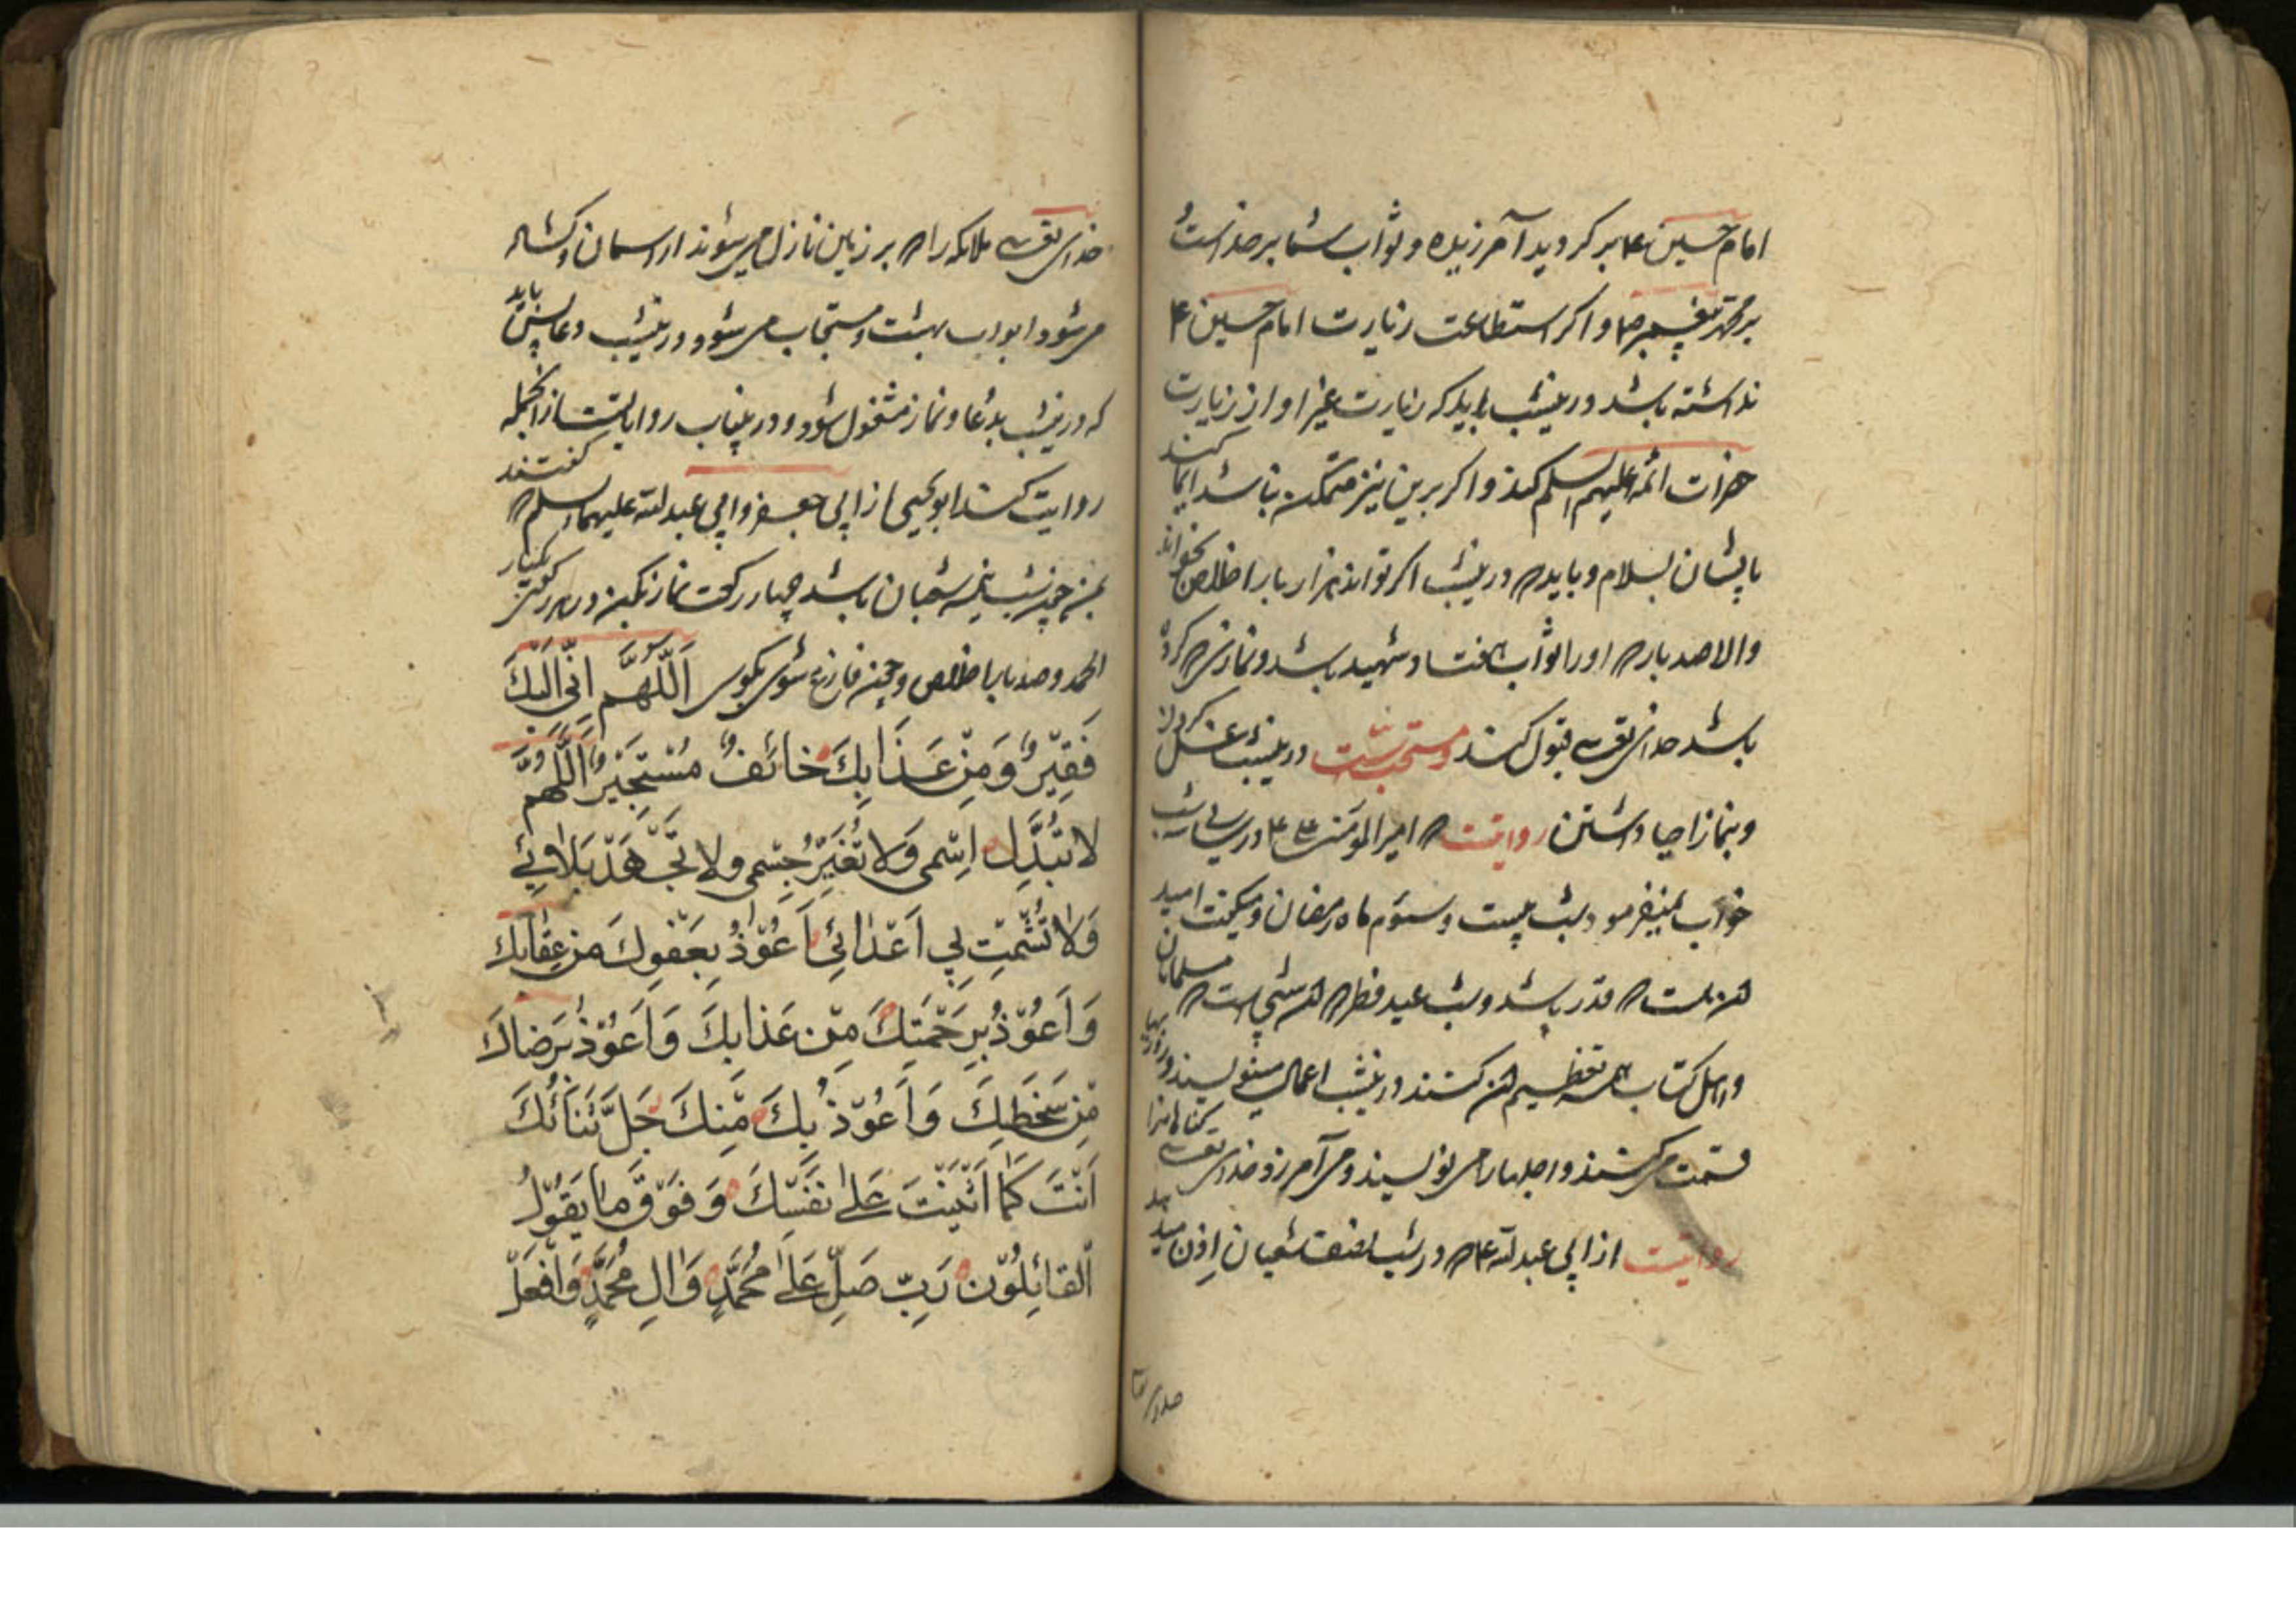 امام حسین ع بر کردید آمرزیده و ثواب شما بر خداست و
بر محمد پیغمبر ص و اکر استطاعت زیارت امام حسین ع
نداشته باشد درینشب باید که زیارت غیر او از زیارت
حضرات ائمه علیهم السلم کند و اکر برین نیز متمکن نباشد ایما کند
بایشان بسلام و باید که درینشب اکر تواند هزار بار اخلاص بخواند
والا صد بار که اورا ثواب باشد و نماز
باشد خدای تعالی قبول کند و مستحبست درینشب غسل کردن
و بنماز احیا داشتن روایتست که امیرالمؤمنین ع در سالی سه شب
خواب نمیفرمود شب بیست و سوم ماه رمضان و میکفت امید
هست که قدر باشد و شب عید فطر که شبی است که مسلمانان
و اهل کتاب همه تعظیم کنند و درینشب اعمال سنه نویسند و روزیها
قسمت می کنند و اجلها را می نویسند و می آمرزد خدای تعالی کناهانرا
روایتست از ابی عبدالله ع که در شب نصف شعبان اذن میدهد
خدای تعالی ملایکه را که بر زمین نازل می شوند از آسمان و کشاده
می شود ابواب بهشت و مستجاب می شود درینشب دعا پس باید
که درینشب بدعا و نماز مشغول شود و درینباب روایاتست از انجمله
روایت کند ابو یحیی از ابی جعفر و ابی عبدالله علیهما السلم که کفتند
شب نیمه شعبان باشد چهار رکعت نماز بکن و در هر رکعتی یکبار
الحمد و صد بار اخلاص و چون فارغ شوی بکوی اَللّهُمَّ اِنّی اِلَیْكَ
فَقِیْرٌ وَمِنْ عَذَابِكَ خائَفٌ مُسْتَجِیْرٌ اَللّهُمَّ
لا تُبَدِّل اِسْمی وَلا تُغَیِّرْ جِسْمی ولا تَجْهَدْ بَلاوئی
وَلا تُشْمِتْ بِی اَعْدائِی اَعُوْذُ بِعَفْوِكَ مِن عِقابِكَ
وَ اَعُوْذُ بِرَحْمَتِكَ مِنْ عَذابِكَ وَ اَعُوْذُ بِرَضاكَ
مِنْ سَخَطِكَ وَ اَعُوْذُ بِكَ مِنكَ جَلَّ ثَنَائُكَ
اَنْتَ كَمٰا اَثْنَیْتَ عَلیٰ نَفْسِكَ وَ فَوْقَ مٰا یَقُوْلُ
اَلْقائِلُوْنَ رَبِّ صَلِّ عَلیٰ مُحَمَّدٍ وَ الِ مُحَمَّدٍ وَافْعَلْ